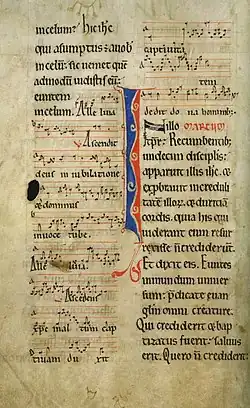 incelum? Hic ihc
qui asumptus e auob
incelu. sic ueniet que
admodu uidistis eu
euntem
incelum. Alle luia
Ascendit
deus in iubilatione
& dominus
inuoce tube.
Alle luia.
Ascendens
xpc in al tum cap
tiuam du xit
captiuitate
tem
dedit do na hominib:
In illo
Recumbentib:
undecim discipulis:
apparuit illis ihc. &
exprobrauit increduli
tate illor. & duritiam
cordis. quia his qui
uiderant eum resur
rexisse n crediderunt.
Et dixit eis. Euntes
inmundum uniuer
sum: predicate euan
glm omni creature.
Qui crediderit & bap
tizatus fuerit: saluus
erit. Qui uero n crediderit: